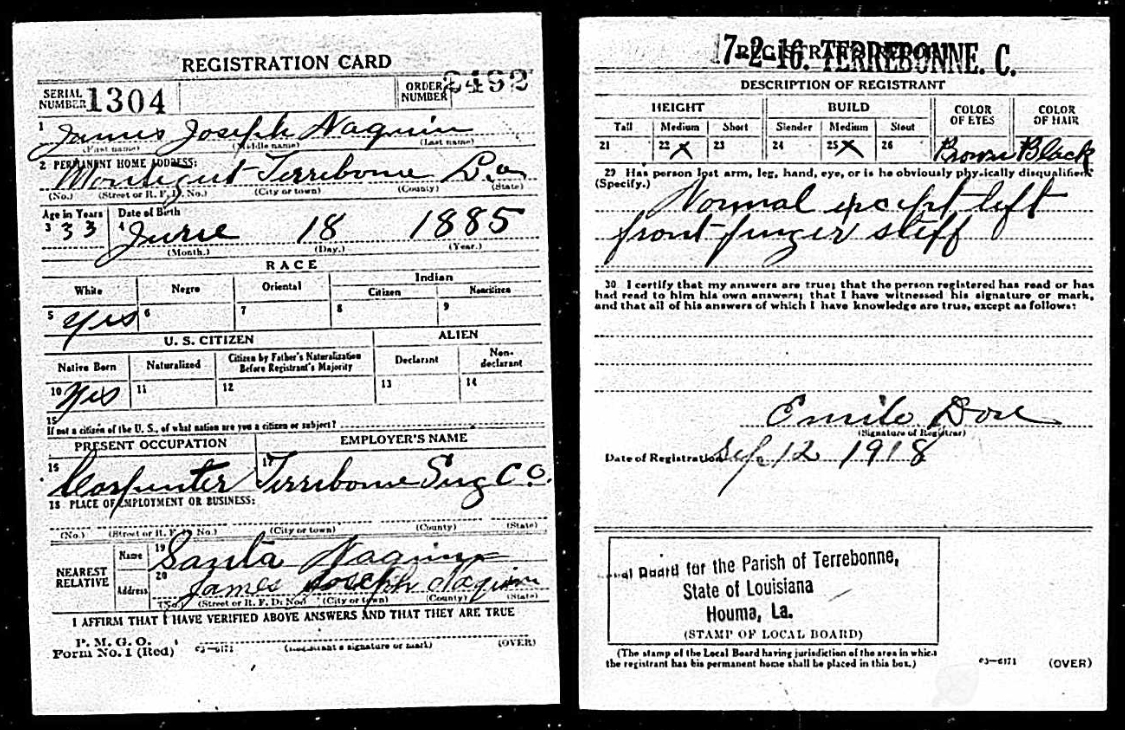 REGISTRATION CARD
SERIAL NUMBER 1304
ORDER NUMBER 2492
1 James Joseph Naquin
(First name) (Middle name) (Last name)
2 PERMANENT HOME ADDRESS:
Montegut Terrebonne La
(No.) (Street or R. F. D. No.) (City or town) (County) (State)
Age in Years Date of Birth
3 33 4 June 18 1885
(Month.) (Day.) (Year.)
RACE
White Negro Oriental Indian
Citizen Noncitizen
5 yes 6 7 8 9
U. S. CITIZEN ALIEN
Native Born Naturalized Citizen by Father's Naturalization Before Registrant's Majority Declarant Non-declarant
10 yes 11 12 13 14
15
If not a citizen of the U. S., of what nation are you a citizen or subject?
PRESENT OCCUPATION EMPLOYER'S NAME
16 Carpenter 17 Terrebonne Sug Co.
18 PLACE OF EMPLOYMENT OR BUSINESS:
(No.) (Street or R. F. D. No.) (City or town) (County) (State)
NEAREST RELATIVE Name 19 Santa Naquin
Address 20 James Joseph Naquin
(No.) (Street or R. F. D. No.) (City or town) (County) (State)
I AFFIRM THAT I HAVE VERIFIED ABOVE ANSWERS AND THAT THEY ARE TRUE
P. M. G. O.
Form No. 1 (Red) 03—6171 (Registrant's signature or mark) (OVER)
17-2-16. TERREBONNE. C.
DESCRIPTION OF REGISTRANT
HEIGHT BUILD COLOR OF EYES COLOR OF HAIR
Tall Medium Short Slender Medium Stout
21 22 X 23 24 25 X 26 Brown Black
29 Has person lost arm, leg, hand, eye, or is he obviously physically disqualified?
(Specify.)
Normal except left
front finger stiff
30 I certify that my answers are true; that the person registered has read or has
had read to him his own answers; that I have witnessed his signature or mark,
and that all of his answers of which I have knowledge are true, except as follows:
Emile Dove
(Signature of Registrar)
Date of Registration Sep 12 1918
Local Board for the Parish of Terrebonne,
State of Louisiana
Houma, La.
(STAMP OF LOCAL BOARD)
(The stamp of the Local Board having jurisdiction of the area in which
the registrant has his permanent home shall be placed in this box.)
03—6171 (OVER)